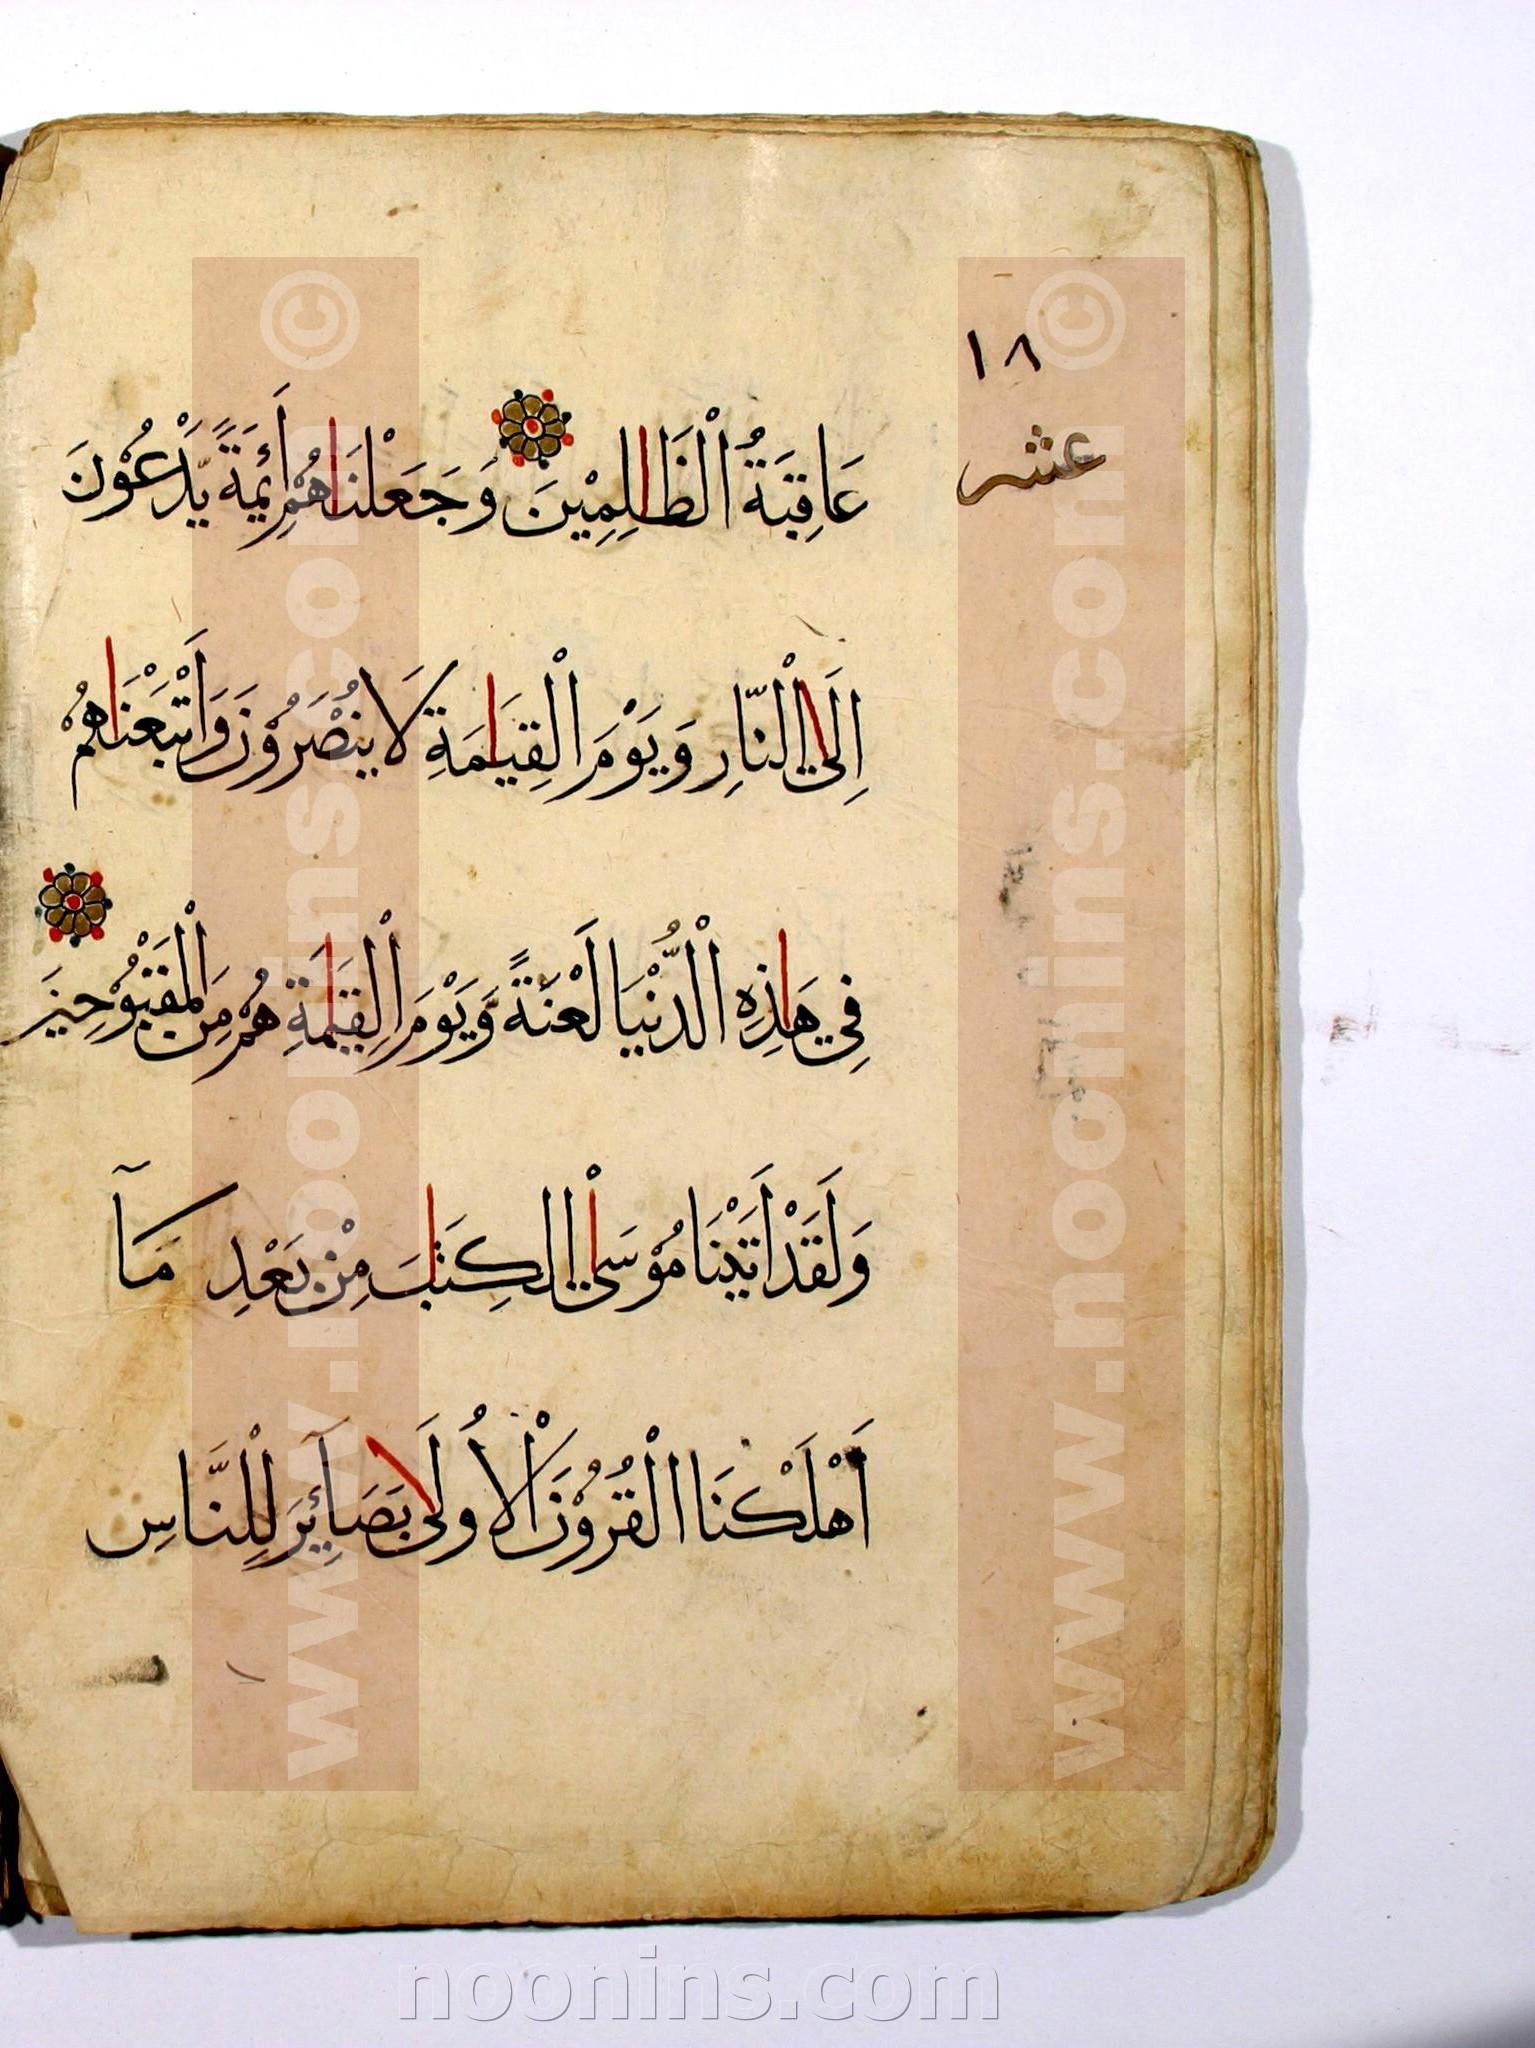 ١٨
عشر
عَاقِبَةُ الْظَالِمِيْنَ وَجَعَلْنَاهُمْ أَئِمَةً يَّدْعُوْنَ
اِلَى الْنَّارِ وَيَوْمَ الْقِيَامَةِ لَا يُنْصَرُوْنَ وَاَتْبَعْنَاهُمْ
فِي هَاذِهِ الْدُّنْيَا لَعْنَةً وَّيَوْمَ الْقِيَامَةِ هُمْ مِنَ الْمَقْبُوْحِيْنَ
وَلَقَدْ اَتَيْنَا مُوْسَى الْكِتَابَ مِنْ بَعْدِ مَآ
اَهْلَكْنَا الْقُرُوْنَ الْأُولَى بَصَآئِرَ لِلنَّاسِ
www.noonins.com ©
www.noonins.com ©
noonins.com